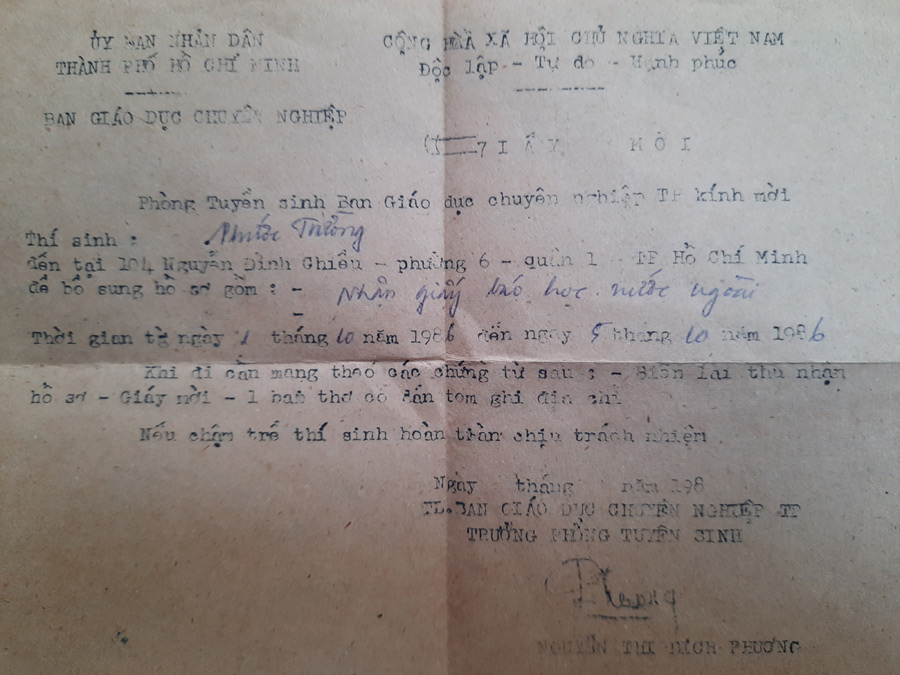 ỦY BAN NHÂN DÂN
THÀNH PHỐ HỒ CHÍ MINH
BAN GIÁO DỤC CHUYÊN NGHIỆP
CỘNG HÒA XÃ HỘI CHỦ NGHĨA VIỆT NAM
Độc lập - Tự do - Hạnh phúc
GIẤY MỜI
Phòng Tuyển sinh Ban Giáo dục chuyên nghiệp TP kính mời
Thí sinh : Phước Trường
đến tại 104 Nguyễn Đình Chiểu - phường 6 - quận 1 TP Hồ Chí Minh
để bổ sung hồ sơ gồm : - Nhận giấy báo học nước ngoài
-
Thời gian từ ngày 1 tháng 10 năm 1986 đến ngày 5 tháng 10 năm 1986
Khi đi cần mang theo các chứng từ sau : - Biên lai thu nhận
hồ sơ - Giấy mời - 1 bao thơ có dán tem ghi địa chỉ
Nếu chậm trễ thí sinh hoàn toàn chịu trách nhiệm
Ngày tháng năm 198
TL.BAN GIÁO DỤC CHUYÊN NGHIỆP TP
TRƯỞNG PHÒNG TUYỂN SINH
NGUYỄN THỊ BÍCH PHƯƠNG